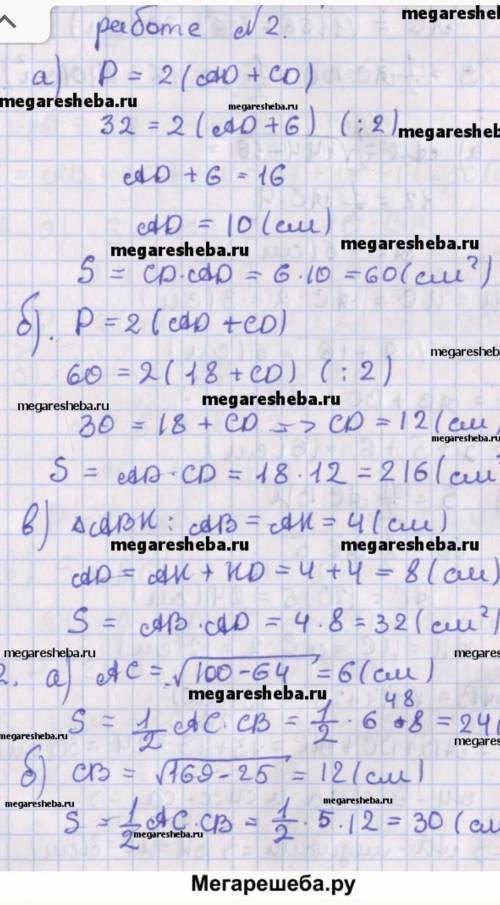 megaresheba.ru
работе №2.
а) P = 2(AD + CD)
megaresheba.ru megaresheba.ru
32 = 2(AD + 6) (:2) megaresheb
AD + 6 = 16
AD = 10 (см)
megaresheba.ru megaresheba.ru
S = CD·AD = 6·10 = 60 (см²)
б). P = 2(AD + CD)
megaresheba.ru
60 = 2(18 + CD) (:2)
megaresheba.ru megaresheba.ru
30 = 18 + CD => CD = 12 (см)
megaresheba.ru
S = AD·CD = 18·12 = 216 (см²
в) △ABK: AB = AK = 4 (см)
megaresheba.ru megaresheba.ru
AD = AK + KD = 4 + 4 = 8 (см)
S = AB·AD = 4·8 = 32 (см²)
megaresheba.ru megares
2. а) AC = √100-64 = 6 (см)
megaresheba.ru
48
S = 1/2 AC·CB = 1/2 · 6 · 8 = 24(
megaresheba.ru megares
б) CB = √169-25 = 12 (см)
megaresheba.ru megaresheba.ru
S = 1/2 AC·CB = 1/2 · 5 · 12 = 30 (см
megaresheba.ru
Мегарешеба.ру